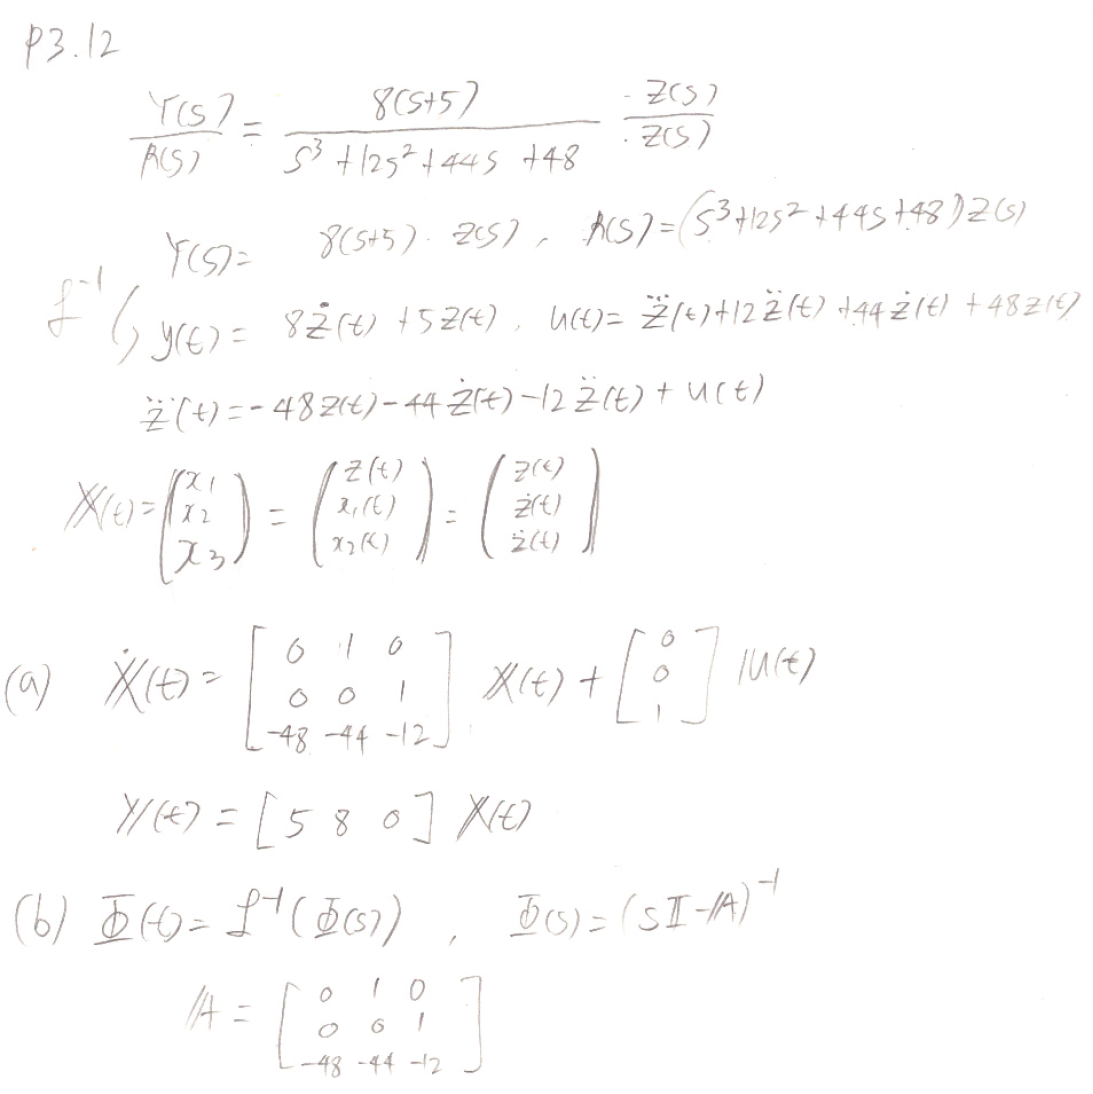 P3.12
Y(S)/R(S) = 8(S+5)/(S³+12S²+44S+48) · Z(S)/· Z(S)
Y(S)= 8(S+5) · Z(S), R(S)=(S³+12S²+44S+48)Z(S)
ℒ⁻¹ ⤵ y(t)= 8ż(t)+5z(t), u(t)= z⃛(t)+12z̈(t)+44ż(t)+48z(t)
z⃛(t)=-48z(t)-44ż(t)-12z̈(t)+u(t)
𝕏(t)=(x1 x2 x3) = (z(t) x1(t) x2(t)) = (z(t) ż(t) z̈(t))
(a) 𝕏̇(t)= [0 1 0; 0 0 1; -48 -44 -12] 𝕏(t)+ [0 0 1] 𝕌(t)
𝕐(t)=[5 8 0] 𝕏(t)
(b) Φ(t)= ℒ⁻¹(Φ(s)), Φ(s)=(s𝕀-𝔸)⁻¹
𝔸= [0 1 0; 0 0 1; -48 -44 -12]